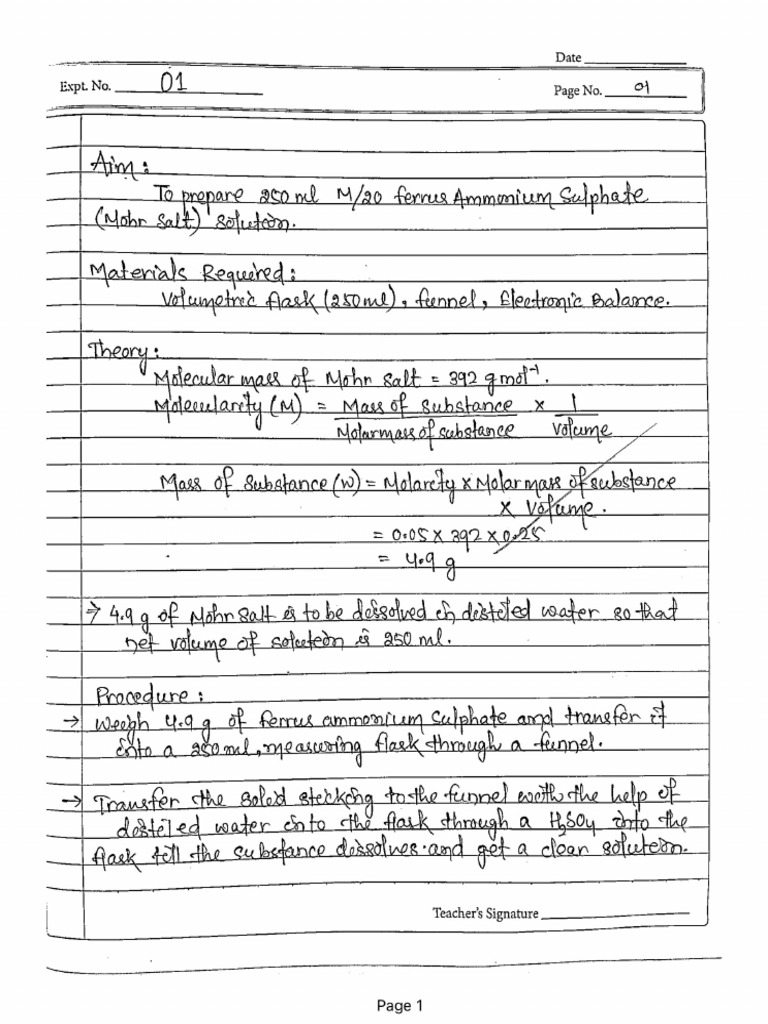 Date
Expt. No. 01
Page No. 01
Aim:
To prepare 250 ml M/20 ferrus Ammonium Sulphate
(Mohr Salt) solution.
Materials Required:
Volumetric flask (250ml), funnel, Electronic Balance.
Theory:
Molecular mass of Mohr Salt = 392 g mol⁻¹.
Molecularity (M) = Mass of substance × 1
Molarmass of substance volume
Mass of Substance (W) = Molarity × Molar mass of substance
× Volume.
= 0.05 × 392 × 0.25
= 4.9 g
→ 4.9 g of Mohr Salt is to be dissolved in distiled water so that
net volume of solution is 250 ml.
Procedure:
→ Weigh 4.9 g of ferrus ammonium sulphate and transfer it
into a 250 ml, measuring flask through a funnel.
→ Transfer the solid sticking to the funnel with the help of
distiled water into the flask through a H₂SO₄ into the
flask till the substance dissolves and get a clean solution.
Teacher's Signature
Page 1